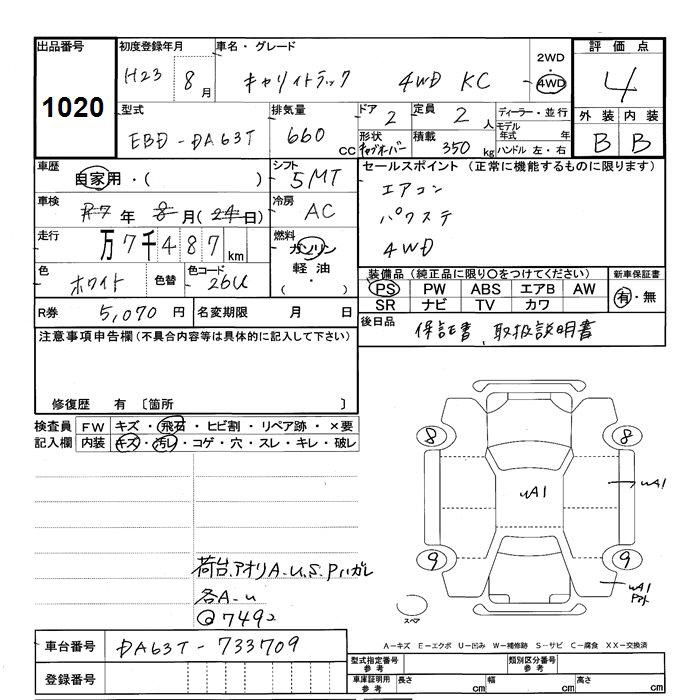 出品番号 1020
初度登録年月 H23 8月
車名・グレード キャリイトラック 4WD KC
2WD
4WD
評価点 4
外装 内装
B B
型式 EBD-DA63T
排気量 660 cc
ドア 2
定員 2人
形状
積載 350 kg
ディーラー・並行
モデル年式 年
ハンドル 左・右
車歴 自家用・( )
シフト 5MT
車検 R7年 8月(24日)
冷房 AC
走行 万7千487km
燃料 ガソリン
軽油
( ・ )
色 ホワイト 色替
色コード 26U
R券 5,070円
名変期限 月 日
セールスポイント (正常に機能するものに限ります)
エアコン
パワステ
4WD
装備品 (純正品に限り〇をつけてください)
PS PW ABS エアB AW
SR ナビ TV カワ
新車保証書
有・無
後日品 保証書、取扱説明書
注意事項申告欄(不具合内容等は具体的に記入して下さい)
修復歴 有 〔箇所 〕
検査員 FW キズ・飛石・ヒビ割・リペア跡・×要
記入欄 内装 キズ・汚レ・コゲ・穴・スレ・キレ・破レ
荷台、アオリA.U.S.Pハガレ
各A-U
@7492
8 8
uA1 uA1
9 9
uA1
スペア
A-キズ E-エクボ U-凹み W-補修跡 S-サビ C-腐食 XX-交換済
車台番号 DA63T-733709
登録番号
型式指定番号 参考
類別区分番号 参考
車庫証明用 参考
長さ cm 幅 cm 高さ cm